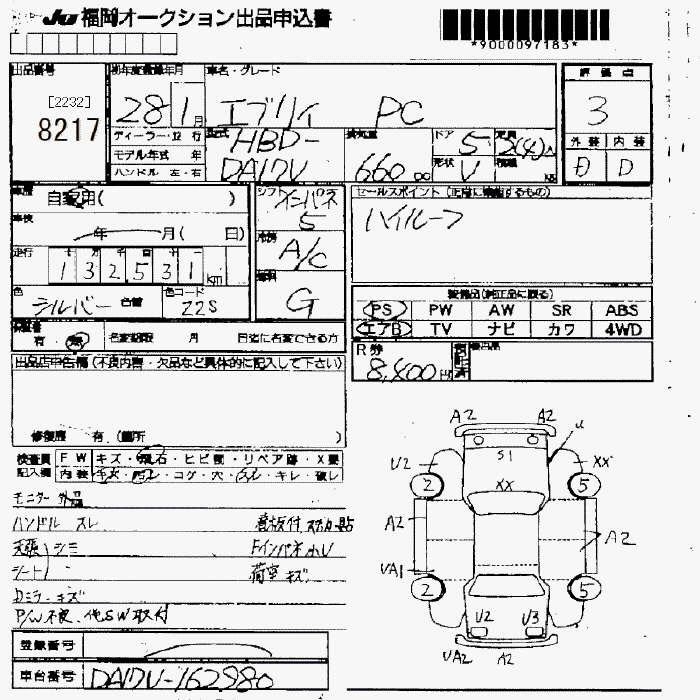 JU 福岡オークション出品申込書
*9000097183*
出品番号
[2232]
8217
初年度登録年月
28 1月
車名・グレード
エブリイ PC
評価点
3
ディーラー・並行
モデル年式 年
ハンドル 左・右
型式
HBD-
DA17V
排気量
660 cc
ドア 5
形状 V
定員 2(4)人
積載 KG
外装 内装
D D
車歴 自家用( )
車検 年 月( 日)
走行 十 万 千 百 十 一
1 3 2 5 3 1 km
色 シルバー 色替
色コード 22S
シフト インパネ
5
冷房 A/C
燃料 G
セールスポイント (正常に機能するもの)
ハイルーフ
装備品(純正品に限る)
PS PW AW SR ABS
エアB TV ナビ カワ 4WD
有・無 名変期限 月 日迄に名変できる方
R券 8,400円
後出品
出品店申告欄 (不良内容・欠品など具体的に記入して下さい)
修復歴 有. (箇所 )
検査員記入欄
FW キズ・飛石・ヒビ割・リペア跡・X要
内装 キズ・汚レ・コゲ・穴・スレ・キレ・破レ
モニター 外品
ハンドル スレ
天張 シミ
シート
意版付 ステカー貼
Fインパネ小U
荷室 キズ
Dミラー キズ
P/W不良、他SW取付
登録番号
車台番号 DA17V-162980
A2 A2
S1 U
U2 XX XX
2 5
A2 A2
UA1
2 5
U2 U3
UA2 A2